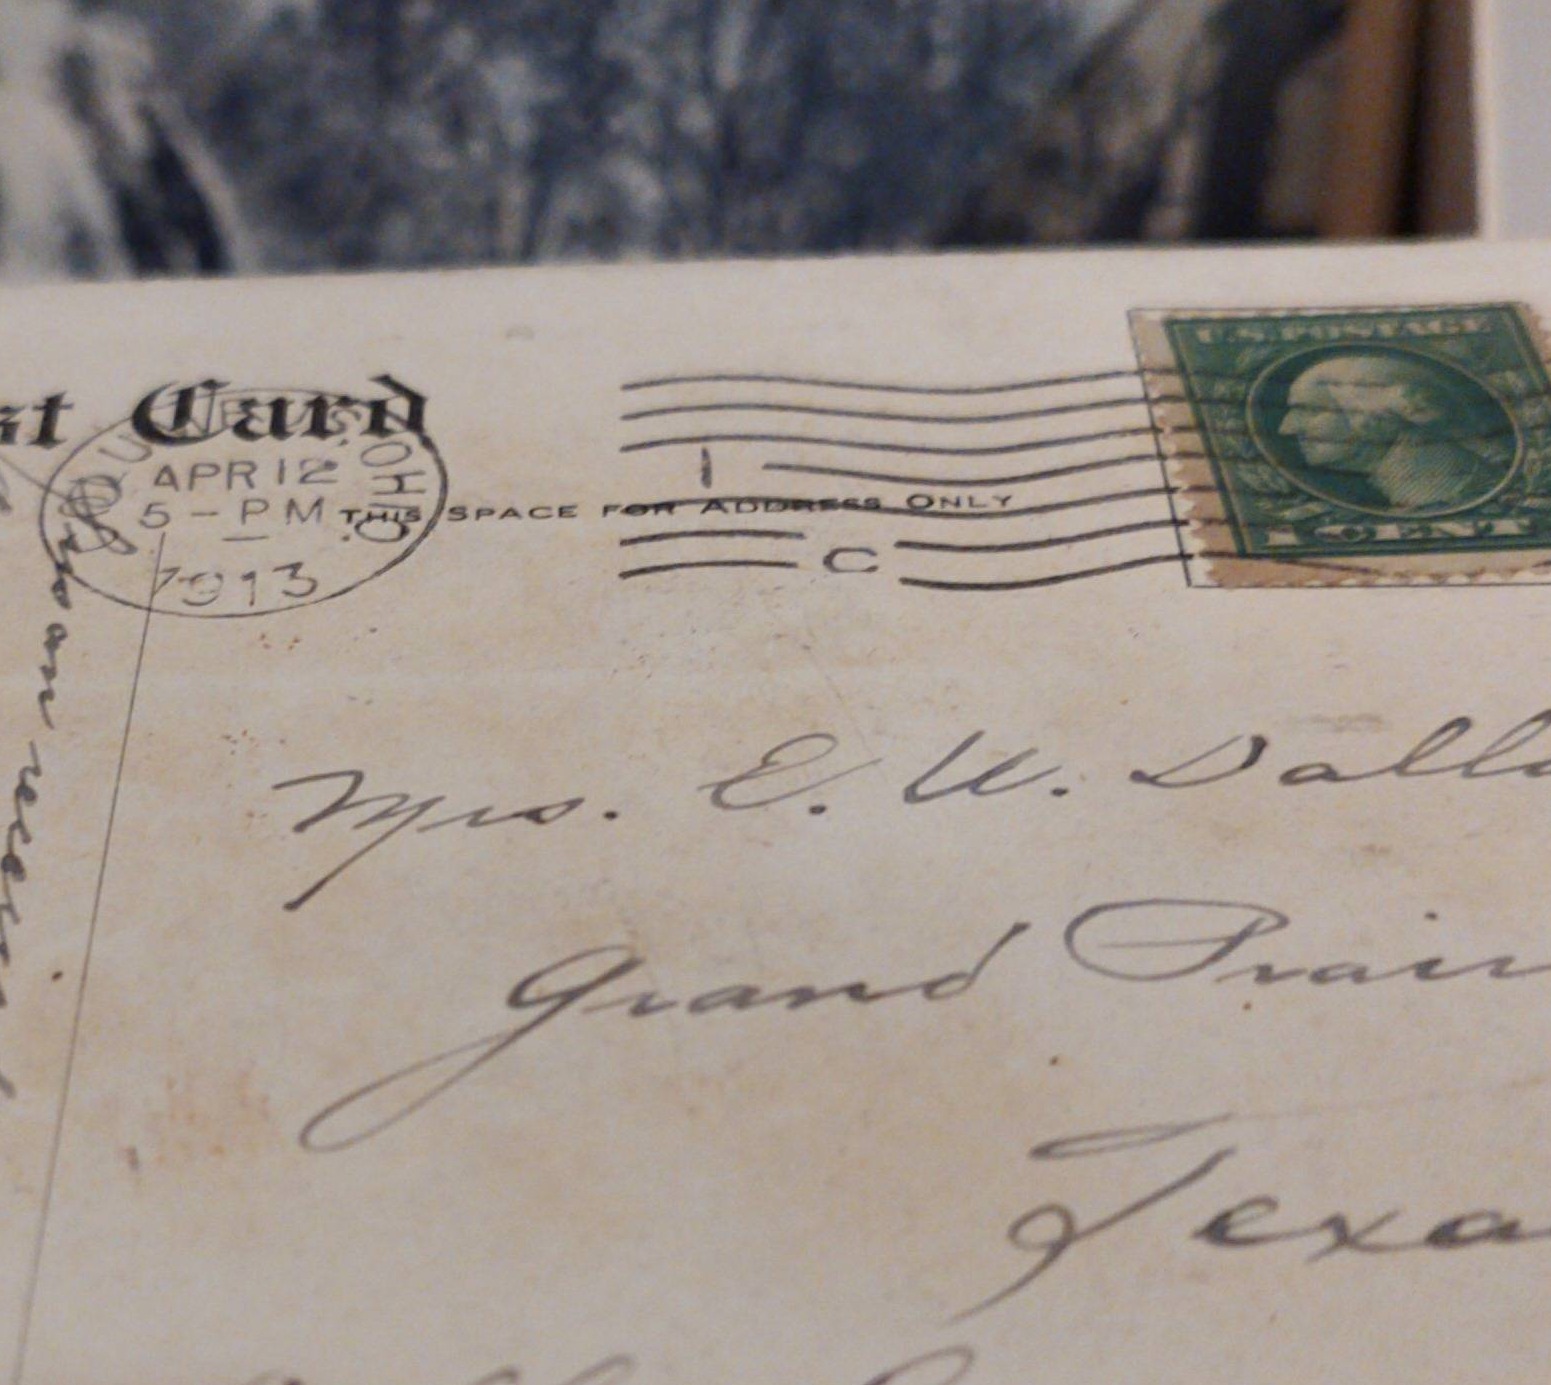 st Card
APR 12
5-PM
1913
OHIO
THIS SPACE FOR ADDRESS ONLY
1
C
U.S. POSTAGE
1 CENT
Mrs. E. W. Dalla
Grand Prair
Texa